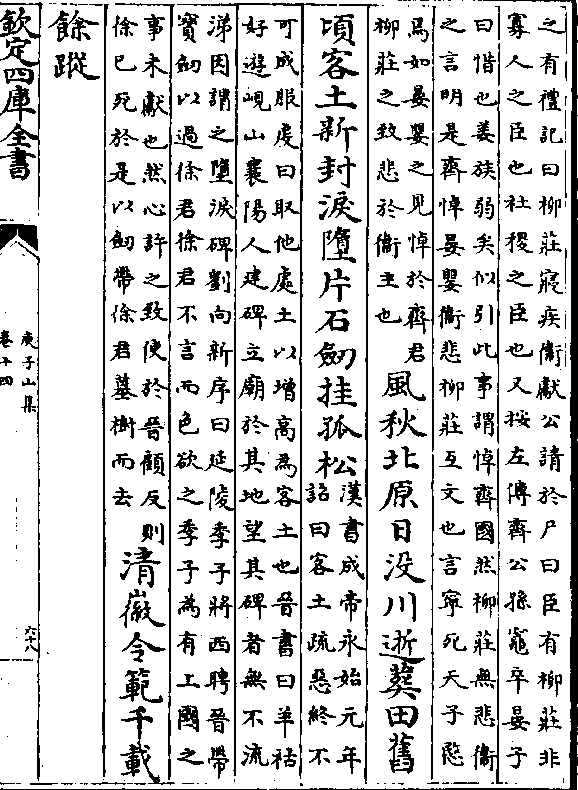 之有禮記曰柳莊寢疾衞獻公請於尸曰臣有柳莊非
寡人之臣也社稷之臣也又按左傳齊公孫竈卒晏子
曰惜也姜族弱矣似引此事謂悼齊國然柳莊無悲衞
之言明是齊悼晏嬰衞悲柳莊互文也言寧死天子愍
焉如晏嬰之見悼於齊君
柳莊之致悲於衞主也
風秋北原日没川逝塟田舊
頃客土新封淚墮片石劒挂孤松
漢書成帝永始元年
詔曰客土疏惡終不
可成服虔曰取他處土以增高為客土也晉書曰羊祜
好遊峴山襄陽人建碑立廟於其地望其碑者無不流
涕因謂之墮淚碑劉向新序曰延陵季子將西聘晉帶
寳劒以過徐君徐君不言而色欲之季子為有上國之
事未獻也然心許之致使於晉顧反則
徐已死於是以劒帶徐君墓樹而去
清徽令範千載
餘蹤
欽定四庫全書
庾子山集
卷十四
六十八